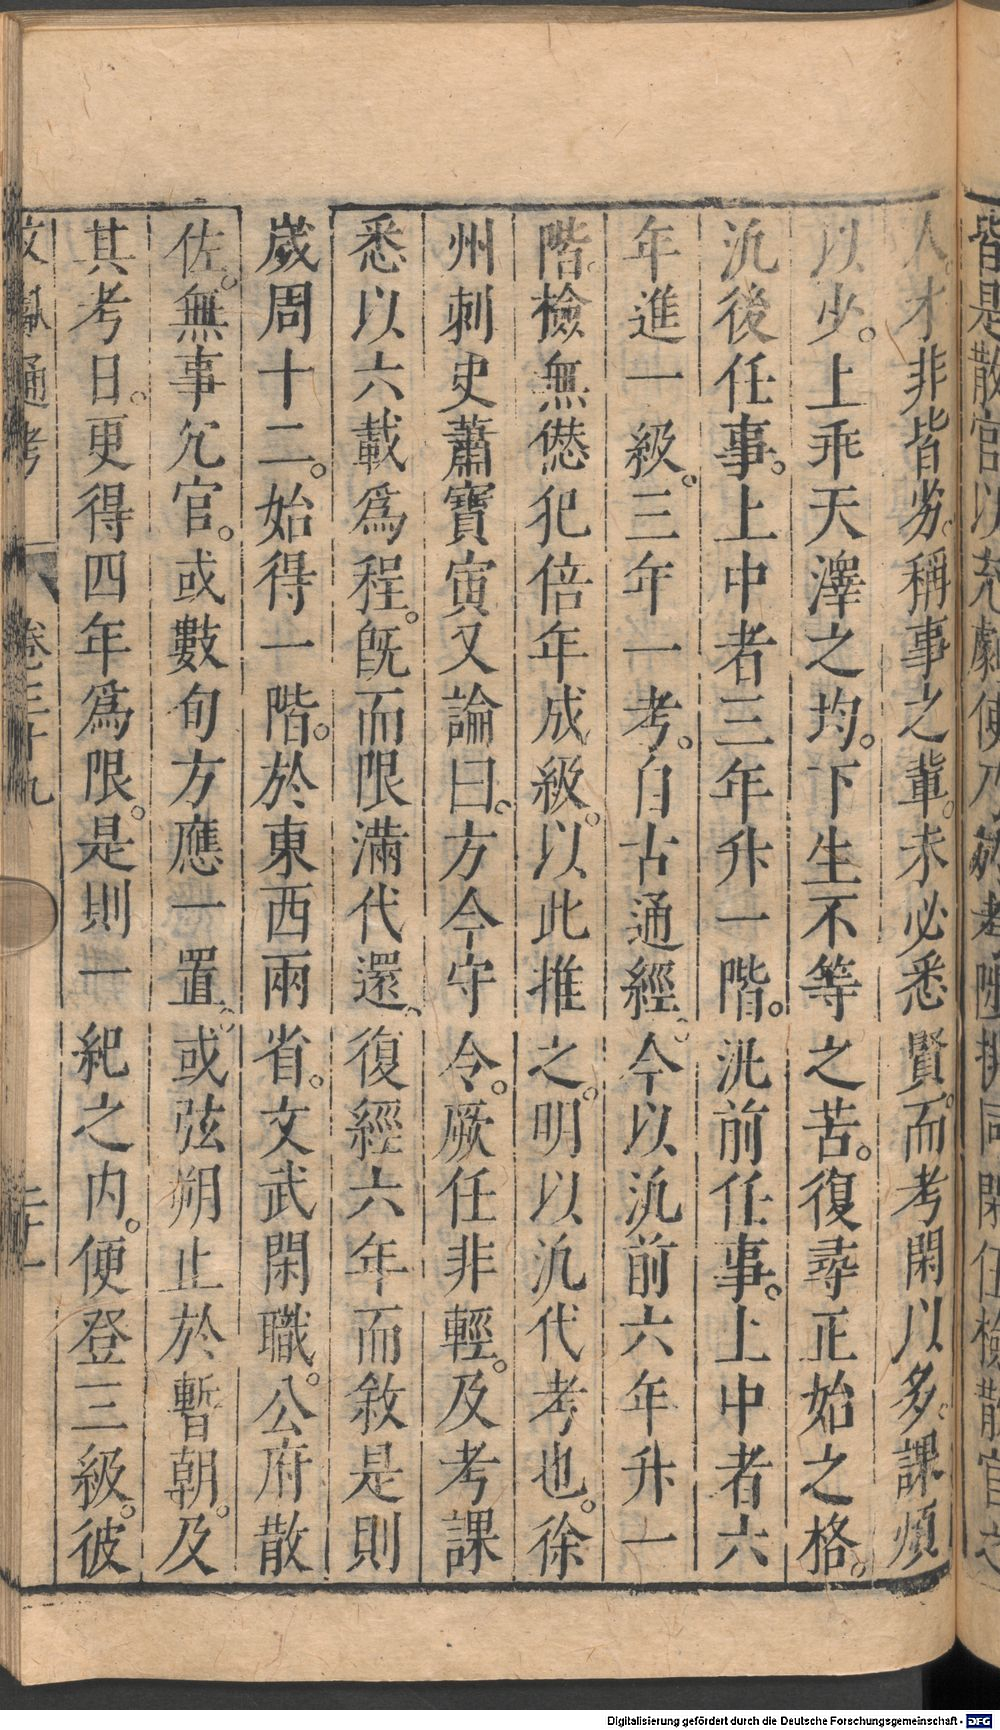 皆是散官以充劇使乃於考陟排同閑伍檢散官之
人才非皆劣。稱事之輩。未必悉賢。而考閑以多。課煩
以少。上乖天澤之均。下生不等之苦。復尋正始之格。
汎後任事。上中者三年升一階。汎前任事。上中者六
年進一級。三年一考。自古通經。今以汎前六年升一
階。檢無愆犯倍年成級。以此推之。明以汎代考也。徐
州刺史蕭寶寅又論曰。方今守令。厥任非輕。及考課
悉以六載為程。既而限滿代還。復經六年而敘是則
歲周十二。始得一階。於東西兩省。文武閑職。公府散
佐。無事冗官。或數旬方應一置。或弦朔止於暫朝。及
其考日。更得四年為限。是則一紀之内。便登三級。彼
文獻通考 卷三十九
Digitalisierung gefördert durch die Deutsche Forschungsgemeinschaft - DFG